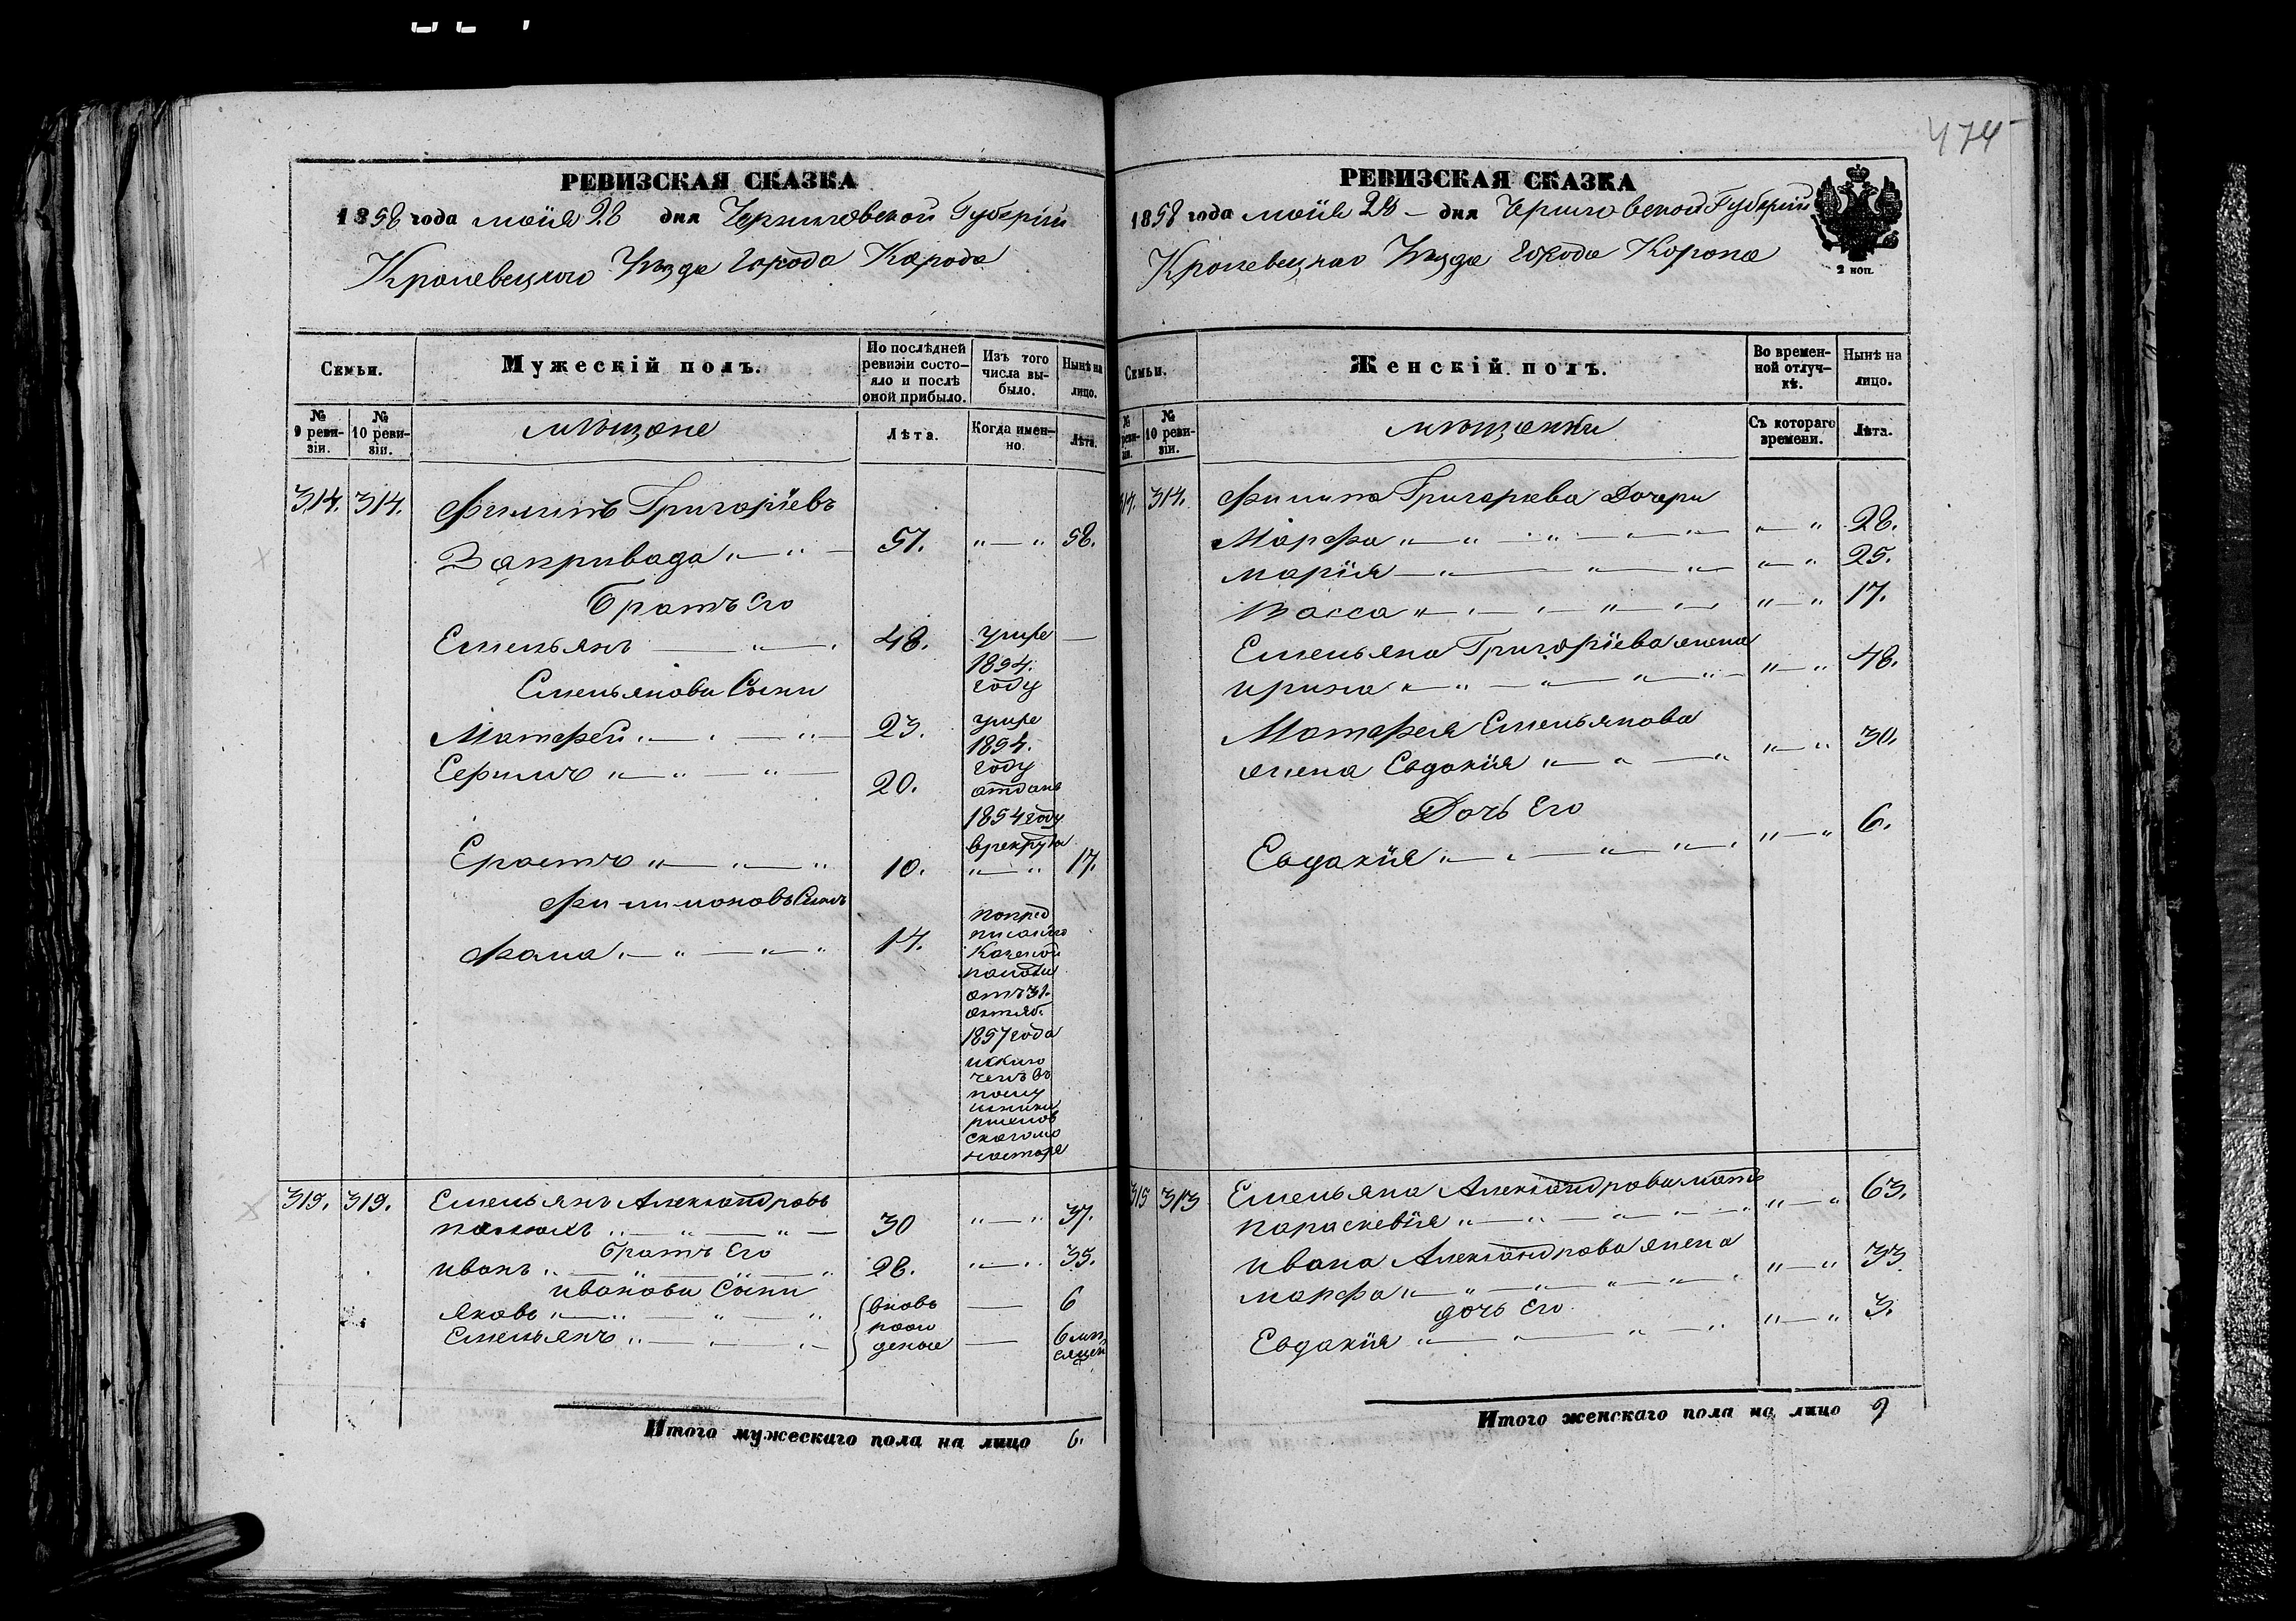 474
РЕВИЗСКАЯ СКАЗКА
1858 года маія 28 дня Черниговской Губерніи
Кролевецкого Уѣзда города Коропа
Семьи.
Мужескій полъ.
По послѣдней ревизіи состояло и послѣ оной прибыло.
Изъ того числа выбыло.
Нынѣ на лицо.
№ 9 ревизіи.
№ 10 ревизіи.
мѣщане
Лѣта.
Когда именно.
Лѣта.
314. 314. Филипъ Григоріевъ
Закривада 51. 58.
Братъ его
Емельянъ 48. умре 1854. году
Емельянови Сыни
Матфей 23. умре 1854. году
20. отданъ 1854 году в рекруты
Ерастъ 10. 17.
Филимоновъ Сынъ
Фома 14. по пред
писанію
Казеной
палати
отъ 31.
октяб.
1857 года
исклю
ченъ въ
315. 315. Емельянъ Александровъ
30 37.
Братъ Его
Иванъ 28. 35.
Иванови Сыни
Яковъ вновь 6
Емельянъ рож
деные 6 мѣ
сяцей
Итого мужескаго пола на лицо 6.
РЕВИЗСКАЯ СКАЗКА
1858 года маія 28 дня Черниговской Губерніи
Кролевецкаго Уѣзда города Коропа
2 коп.
Семьи.
Женскій полъ.
Во временной отлучкѣ.
Нынѣ на лицо.
№ реви- зіи.
№ 10 ревизіи.
мѣщанки
Съ котораго времени.
Лѣта.
314. 314. Филипа Григоріева Дочери
Марфа 28.
Марія 25.
Васса 17.
Емельяна Григоріева жена
Ирина 48.
Матфея Емельянова
жена Евдокія 30.
Дочь Его
Евдокія 6.
315 315 Емельяна Александрова мать
Параскевія 63.
Ивана Александрова жена
Марфа 33
дочь Его
Евдокія 3.
Итого женскаго пола на лицо 9